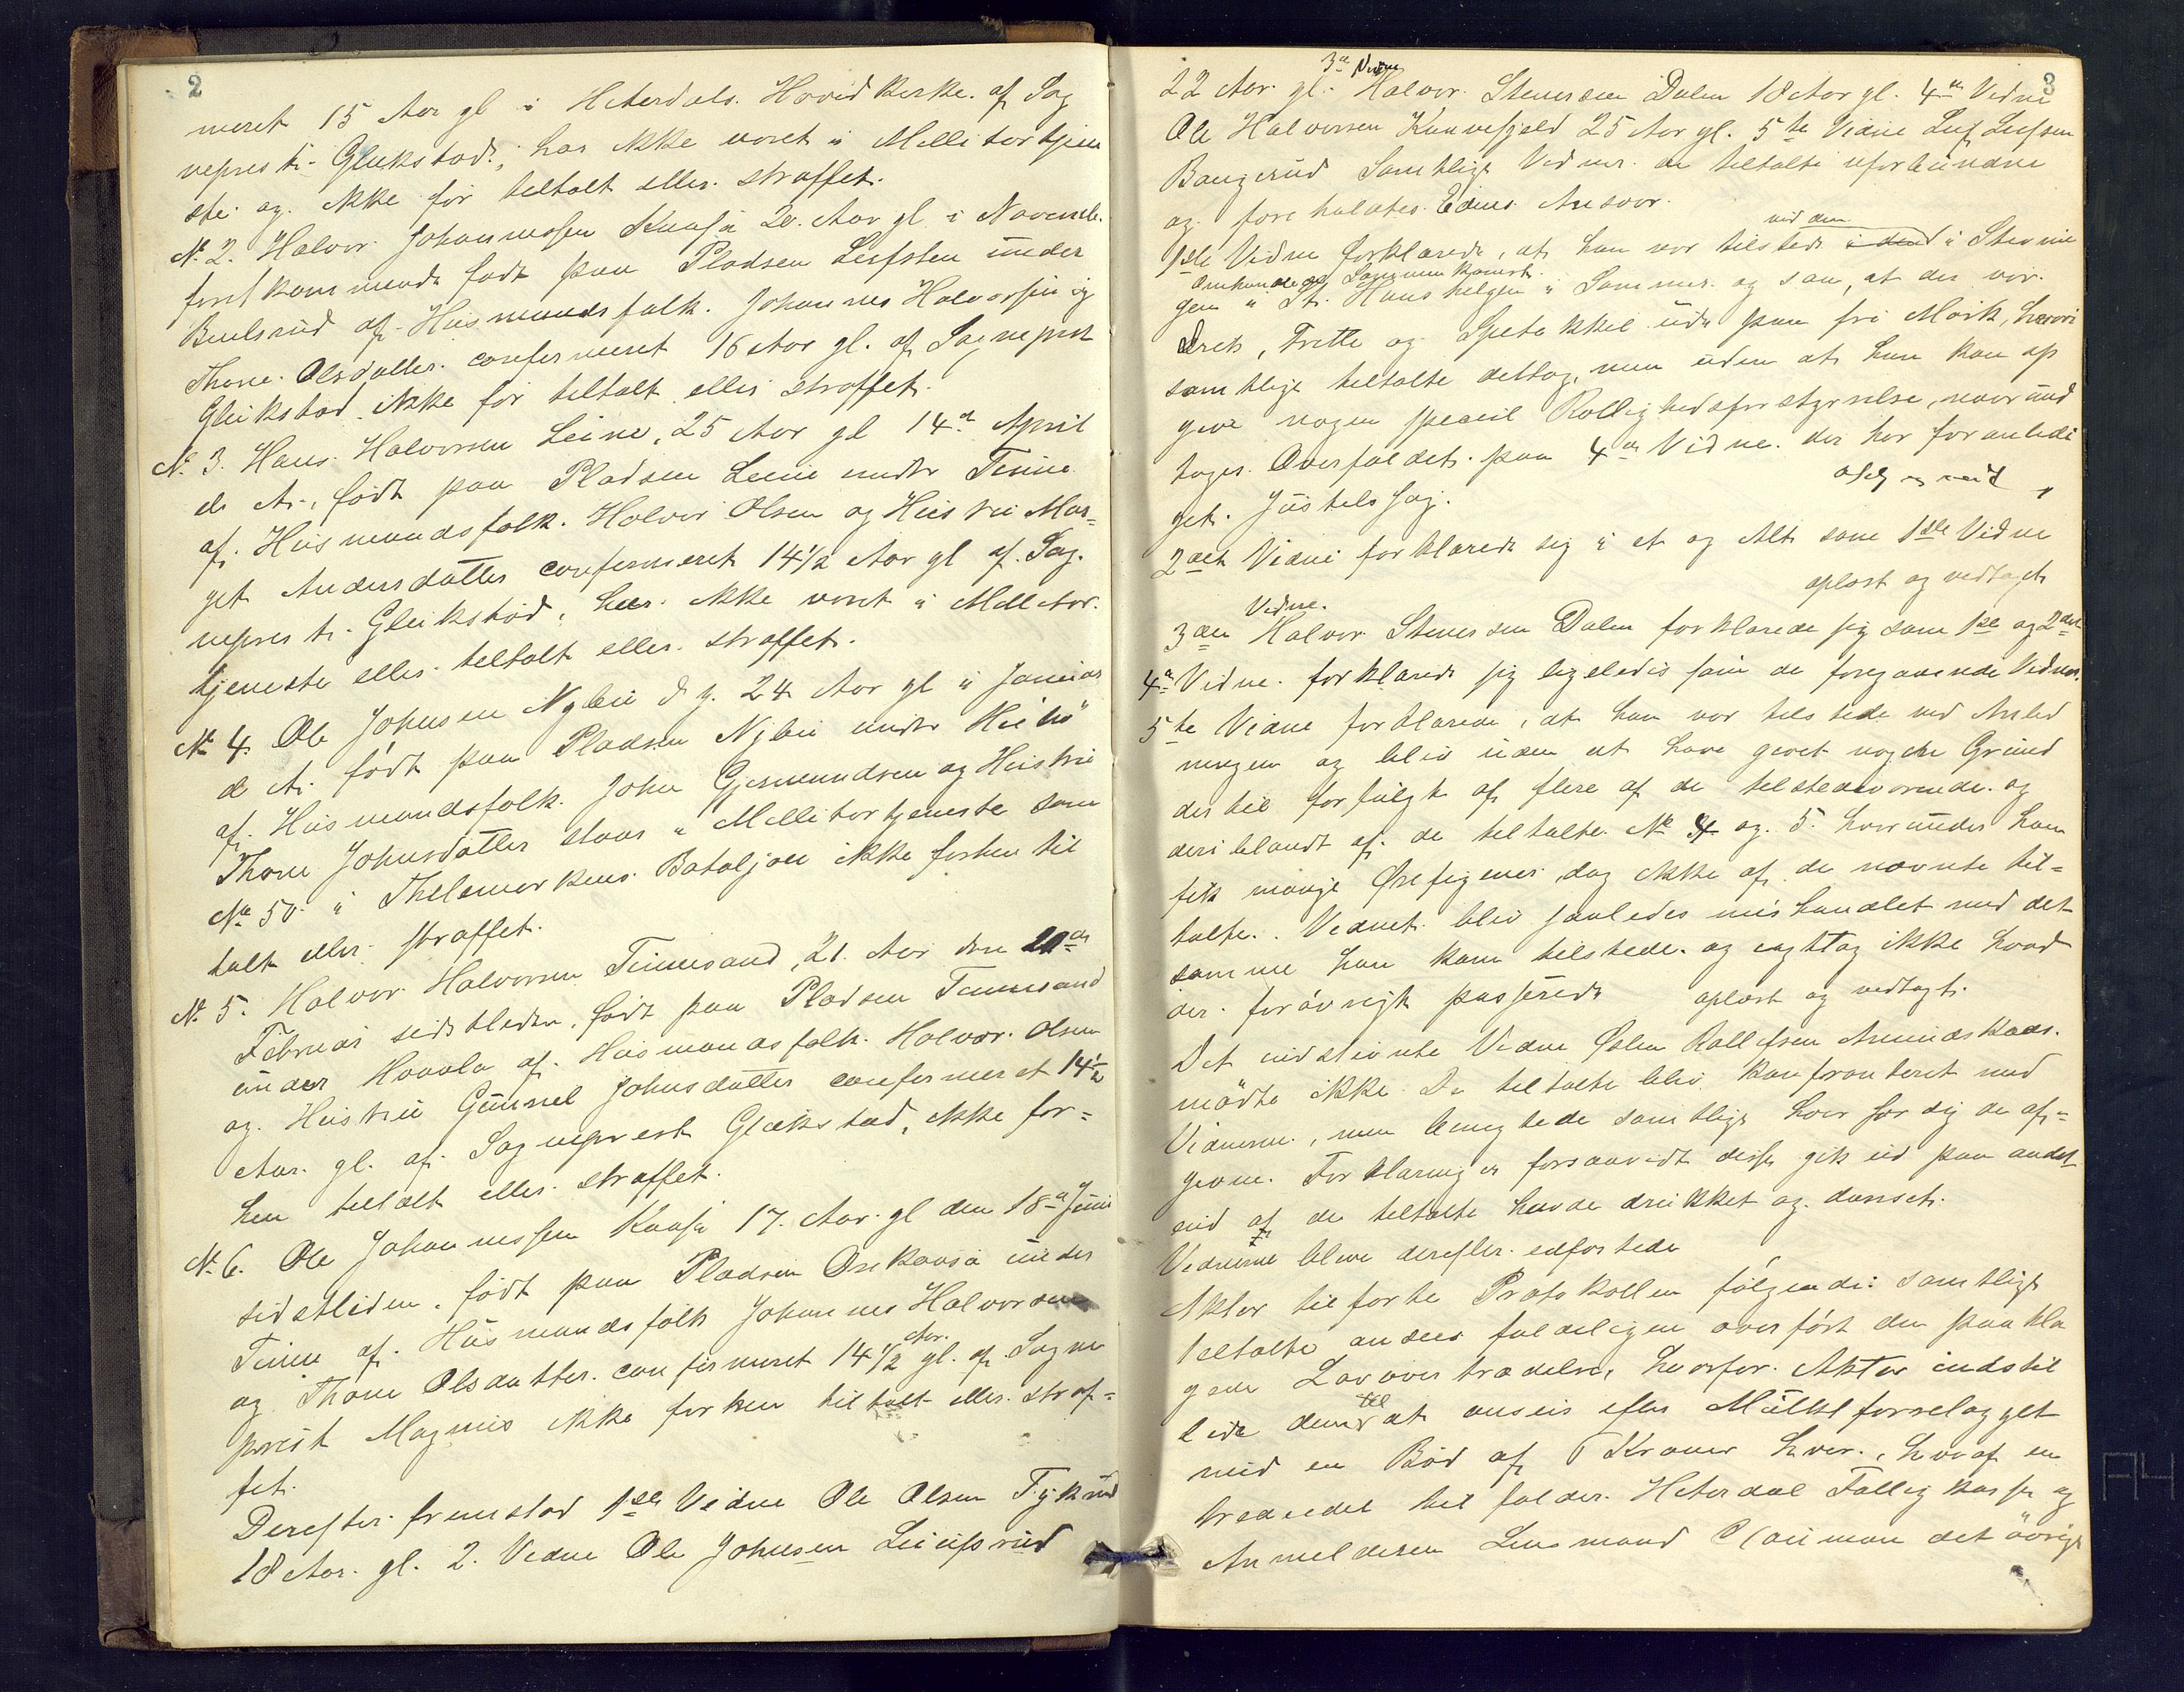 2
meret 15 Aar gl i Hiterdals Hovidkirke af Sog
neprest Gluckstad, har ikke voret i Millitortjene
ste og ikke før tiltalt eller straffet.
No 2. Halvor Johannessen Kaasa 20 Aar gl i Novemb.
først kommende født paa Pladsen under
af Husmandsfolk Johannes Halvorsen og
Thone Olsdatter confermeret 16 Aar gl. af Sogneprest
Gluckstad ikke før tiltalt eller straffet.
No 3. Hans Halvorsen Leine, 25 Aar gl 14de April
d A., født paa Pladsen Leine under Tinne
af Husmandsfolk Halvor Olsen og Hustru Mar=
get Andersdatter confermeret 14 1/2 Aar gl af Sog.
neprest Gluckstad, har ikke voret i Millitor.
tjeneste eller tiltalt eller straffet.
No 4. Ole Johnsen Nybu d. y. 24 Aar gl i Januar
d A. født paa Pladsen Nybu under
af Husmandsfolk John Gjermundsen og Hustru
Thone Johnsdatter staar i Millitortjeneste som
No 50 i Thelemarkens Bataljon ikke forhen til
talt eller straffet.
No 5. Halvor Halvorsen Tinnesand, 21 Aar den 20de
Februar sidstleden, født paa Pladsen Tinnesand
under Hovala af Husmandsfolk Halvor Olsen
og Hustru Gunnel Johnsdatter confermeret 14 1/2
Aar gl. af Sogneprest Gluckstad, ikke for=
hen tiltalt eller straffet.
No 6. Ole Johannessen Kaasa 17 Aar gl den 18de Juni
sidstleden, født paa Pladsen under
Tinne af Husmandsfolk Johannes Halvorsen
og Thone Olsdatter confirmeret 14 1/2 Aar gl. af Sogne
prest Magnus ikke forhen tiltalt eller straf=
fet.
Derefter fremstod 1ste Vidne Ole Olsen
18 Aar gl. 2. Vidne Ole Johnsen
3
22 Aar gl. 3de Vidne Halvor Stenersen Dalen 18 Aar gl. 4de Vidne
Ole Halvorsen 25 Aar gl. 5te Vidne Leif Leifsen
Bangerud Samtlige Vidner er tiltalte uforbundne
og foreholdtes Edens Ansvar.
1ste Vidne forklarede, at han var tilstede ved den i Stevnin
gen omhandlede Sammenkomst i St. Hanshelgen i Sommer og saa, at der var
Drik, Trette og Spetakkel ude paa fri Mark, hvori
samtlige tiltalte deltog, men uden at han kan op
give nogen speciel Rollighedsforstyrrelse, naar und
tages Overfaldet paa 4de Vidne der har foranledi
get Justitssag.
2det Vidne forklarede sig i et og Alt som 1ste Vidne
oplæst og vedtaget
3die Vidne Halvor Stenersen Dalen forklarede sig som 1ste og 2det
4de Vidne forklarede sig ligeledes som de foregaaende Vidner.
5te Vidne forklarede, at han var tilstede ved Anled
ningen og blev uden at have gevet nogen Grund
dertil forfulgt af flere af de tilstedeværende og
deriblandt af de tiltalte No 4 og 5. hvorunder han
fik mange Ørefigener dog ikke af de nævnte til=
talte. Vidnet blev saaledes mishandlet med det
samme han kom tilstede og iagttog ikke hvad
der forøvrigt passerede oplæst og vedtaget.
Det indstevnte Vidne Rollefsen
mødte ikke De tiltalte blev konfronteret med
Vidnerne, men benegtede samtlige hver for sig de af=
givne Forklaringer forsaavidt disse gik ud paa andet
end at de tiltalte havde drukket og danset.
Vidnerne bleve derefter edfestede
Aktor tilførte Protokollen følgende: samtlige
tiltalte ansees fuldeligen overført den paakla
gede Lovovertrædelse, hvorfor Aktor indstil
lede dem til at anseis efter Mulktforrelægget
med en Bod af Kroner hver, hvoraf en
trediedel tilfalder Hiterdal Fattigkasse og
Anmelderen Lensmand det øvrige